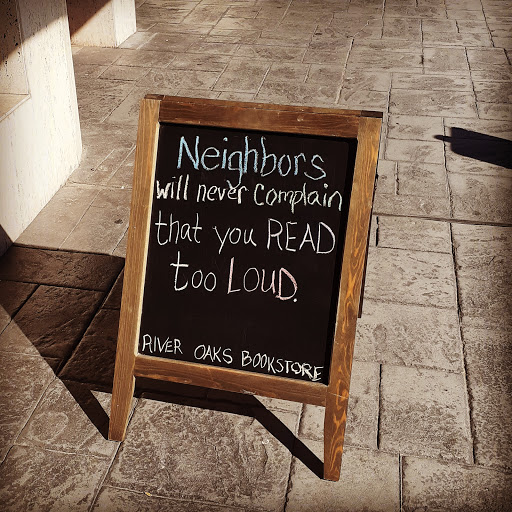 Neighbors
will never complain
that you READ
too LOUD.
RIVER OAKS BOOKSTORE